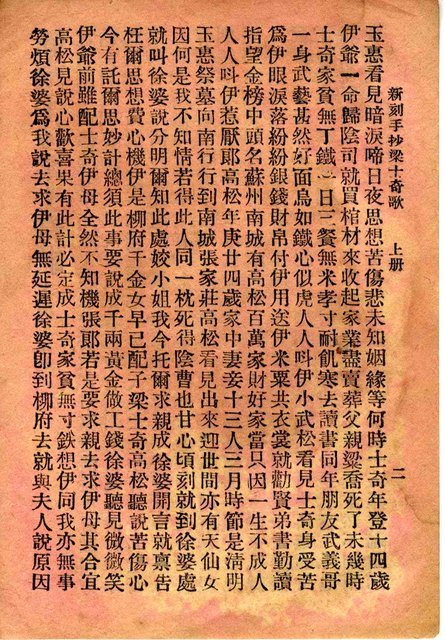 新刻手抄梁士奇歌　上册　二
玉惠看見暗淚啼日夜思想苦傷悲未知姻緣等何時士奇年登十四歲
伊爺一命歸陰司就買棺材來收起家業盡賣葬父親梁喬死了未幾時
士奇家貧無丁鐵一日三餐無米孝寸耐飢寒去讀書同年朋友武義哥
一身武藝甚然好面烏如鐵心似虎人人呌伊小武松看見士奇身受苦
爲伊眼淚落紛紛銀錢財帛付伊用送伊米粟共衣裳就勸賢弟書勤讀
指望金榜中頭名蘇州南城有高松百萬家財好家當只因一生不成人
人人呌伊惹厭郎高松年庚廿四歲家中妻妾十三人三月時節是淸明
玉惠祭墓向南行行到南城張家莊高松看見出來迎世間亦有天仙女
因何是我不知情若得此人同一枕死得陰曹也甘心頃刻就到徐婆處
就叫徐婆說分明爾知此處姣小姐我今托爾求親成徐婆開言就禀告
枉爾思想費心機伊是柳府千金女早已配子梁士奇高松聽說苦傷心
今有託爾思妙計總須此事要說成千兩黃金做工錢徐婆聽見微微笑
伊爺前雖配士奇伊母全然不知機張郎若是要求親去求伊母其合宜
高松見說心歡喜果有此計必定成士奇家貧無寸鉄想伊同我亦無事
勞煩徐婆爲我說去求伊母無延遲徐婆卽到柳府去就與夫人說原因